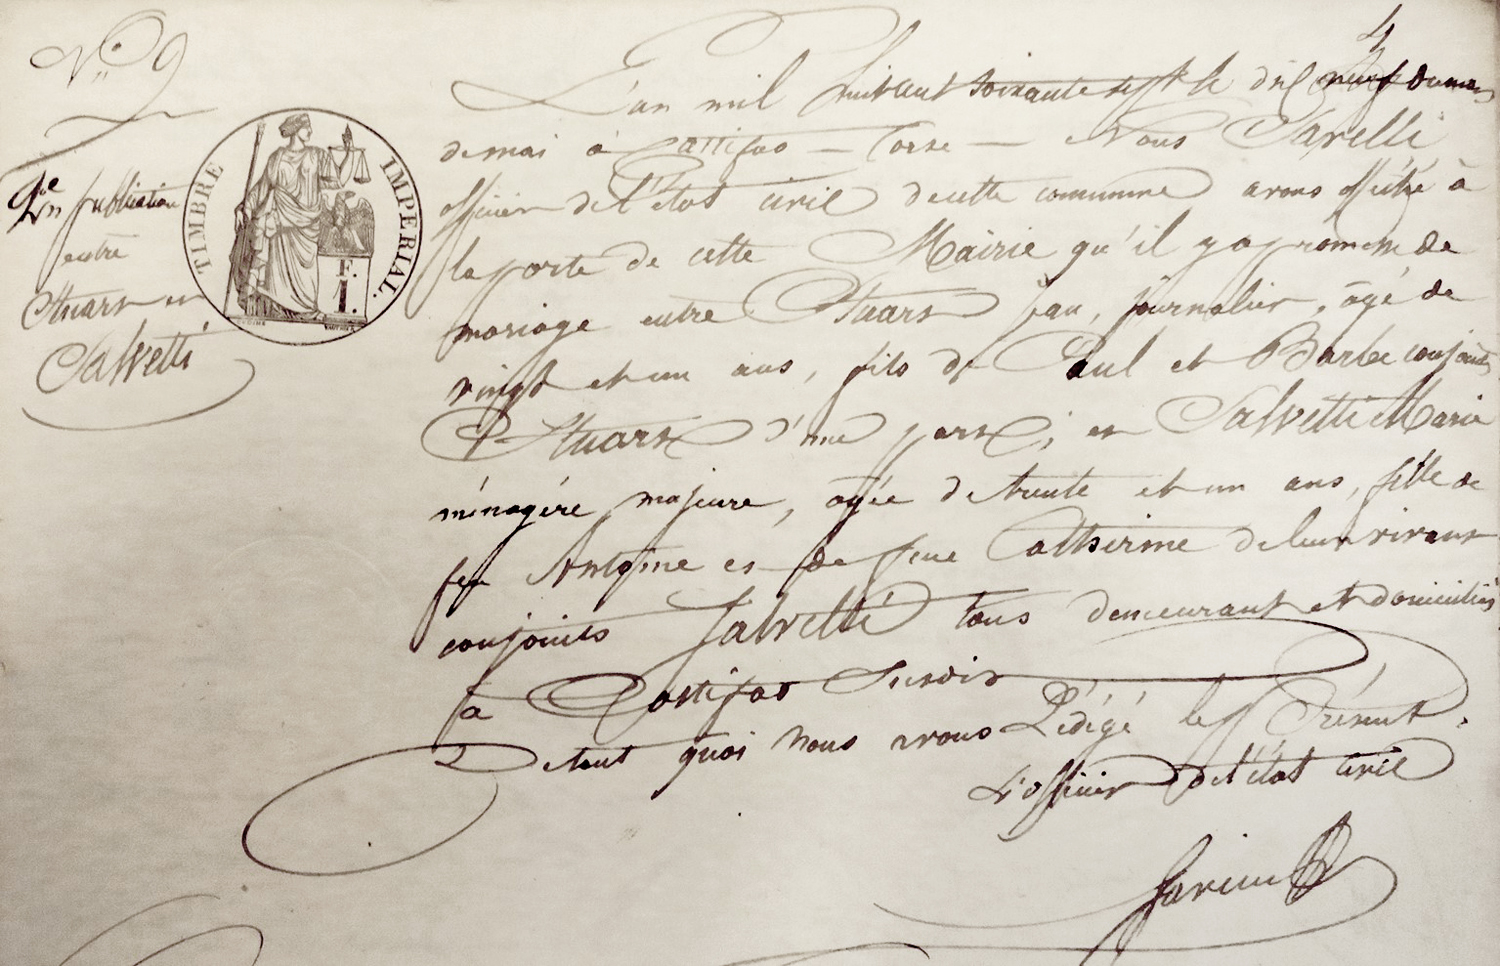 N° 9
4
2me publication
entre
Stuart et
Salvetti
TIMBRE IMPERIAL.
F.
1.
L'an mil huit cent soixante sept le dix neuf du mois
de mai à Castifao - Corse - Nous Savelli
officier de l'état civil de cette commune avons affiché à
la porte de cette Mairie qu'il y a promesse de
mariage entre Stuart Jean, journalier, âgé de
vingt et un ans, fils de Paul et Barbe conjoints
Stuart d'une part, et Salvetti Marie
ménagère majeure, agée de trente et un ans, fille de
feu Antoine et de feue Catherine de leur vivant
conjoints Salvetti tous demeurant et domiciliés
à Castifao Susdit
De tout quoi nous avons Rédigé le Présent.
L'officier de l'état civil